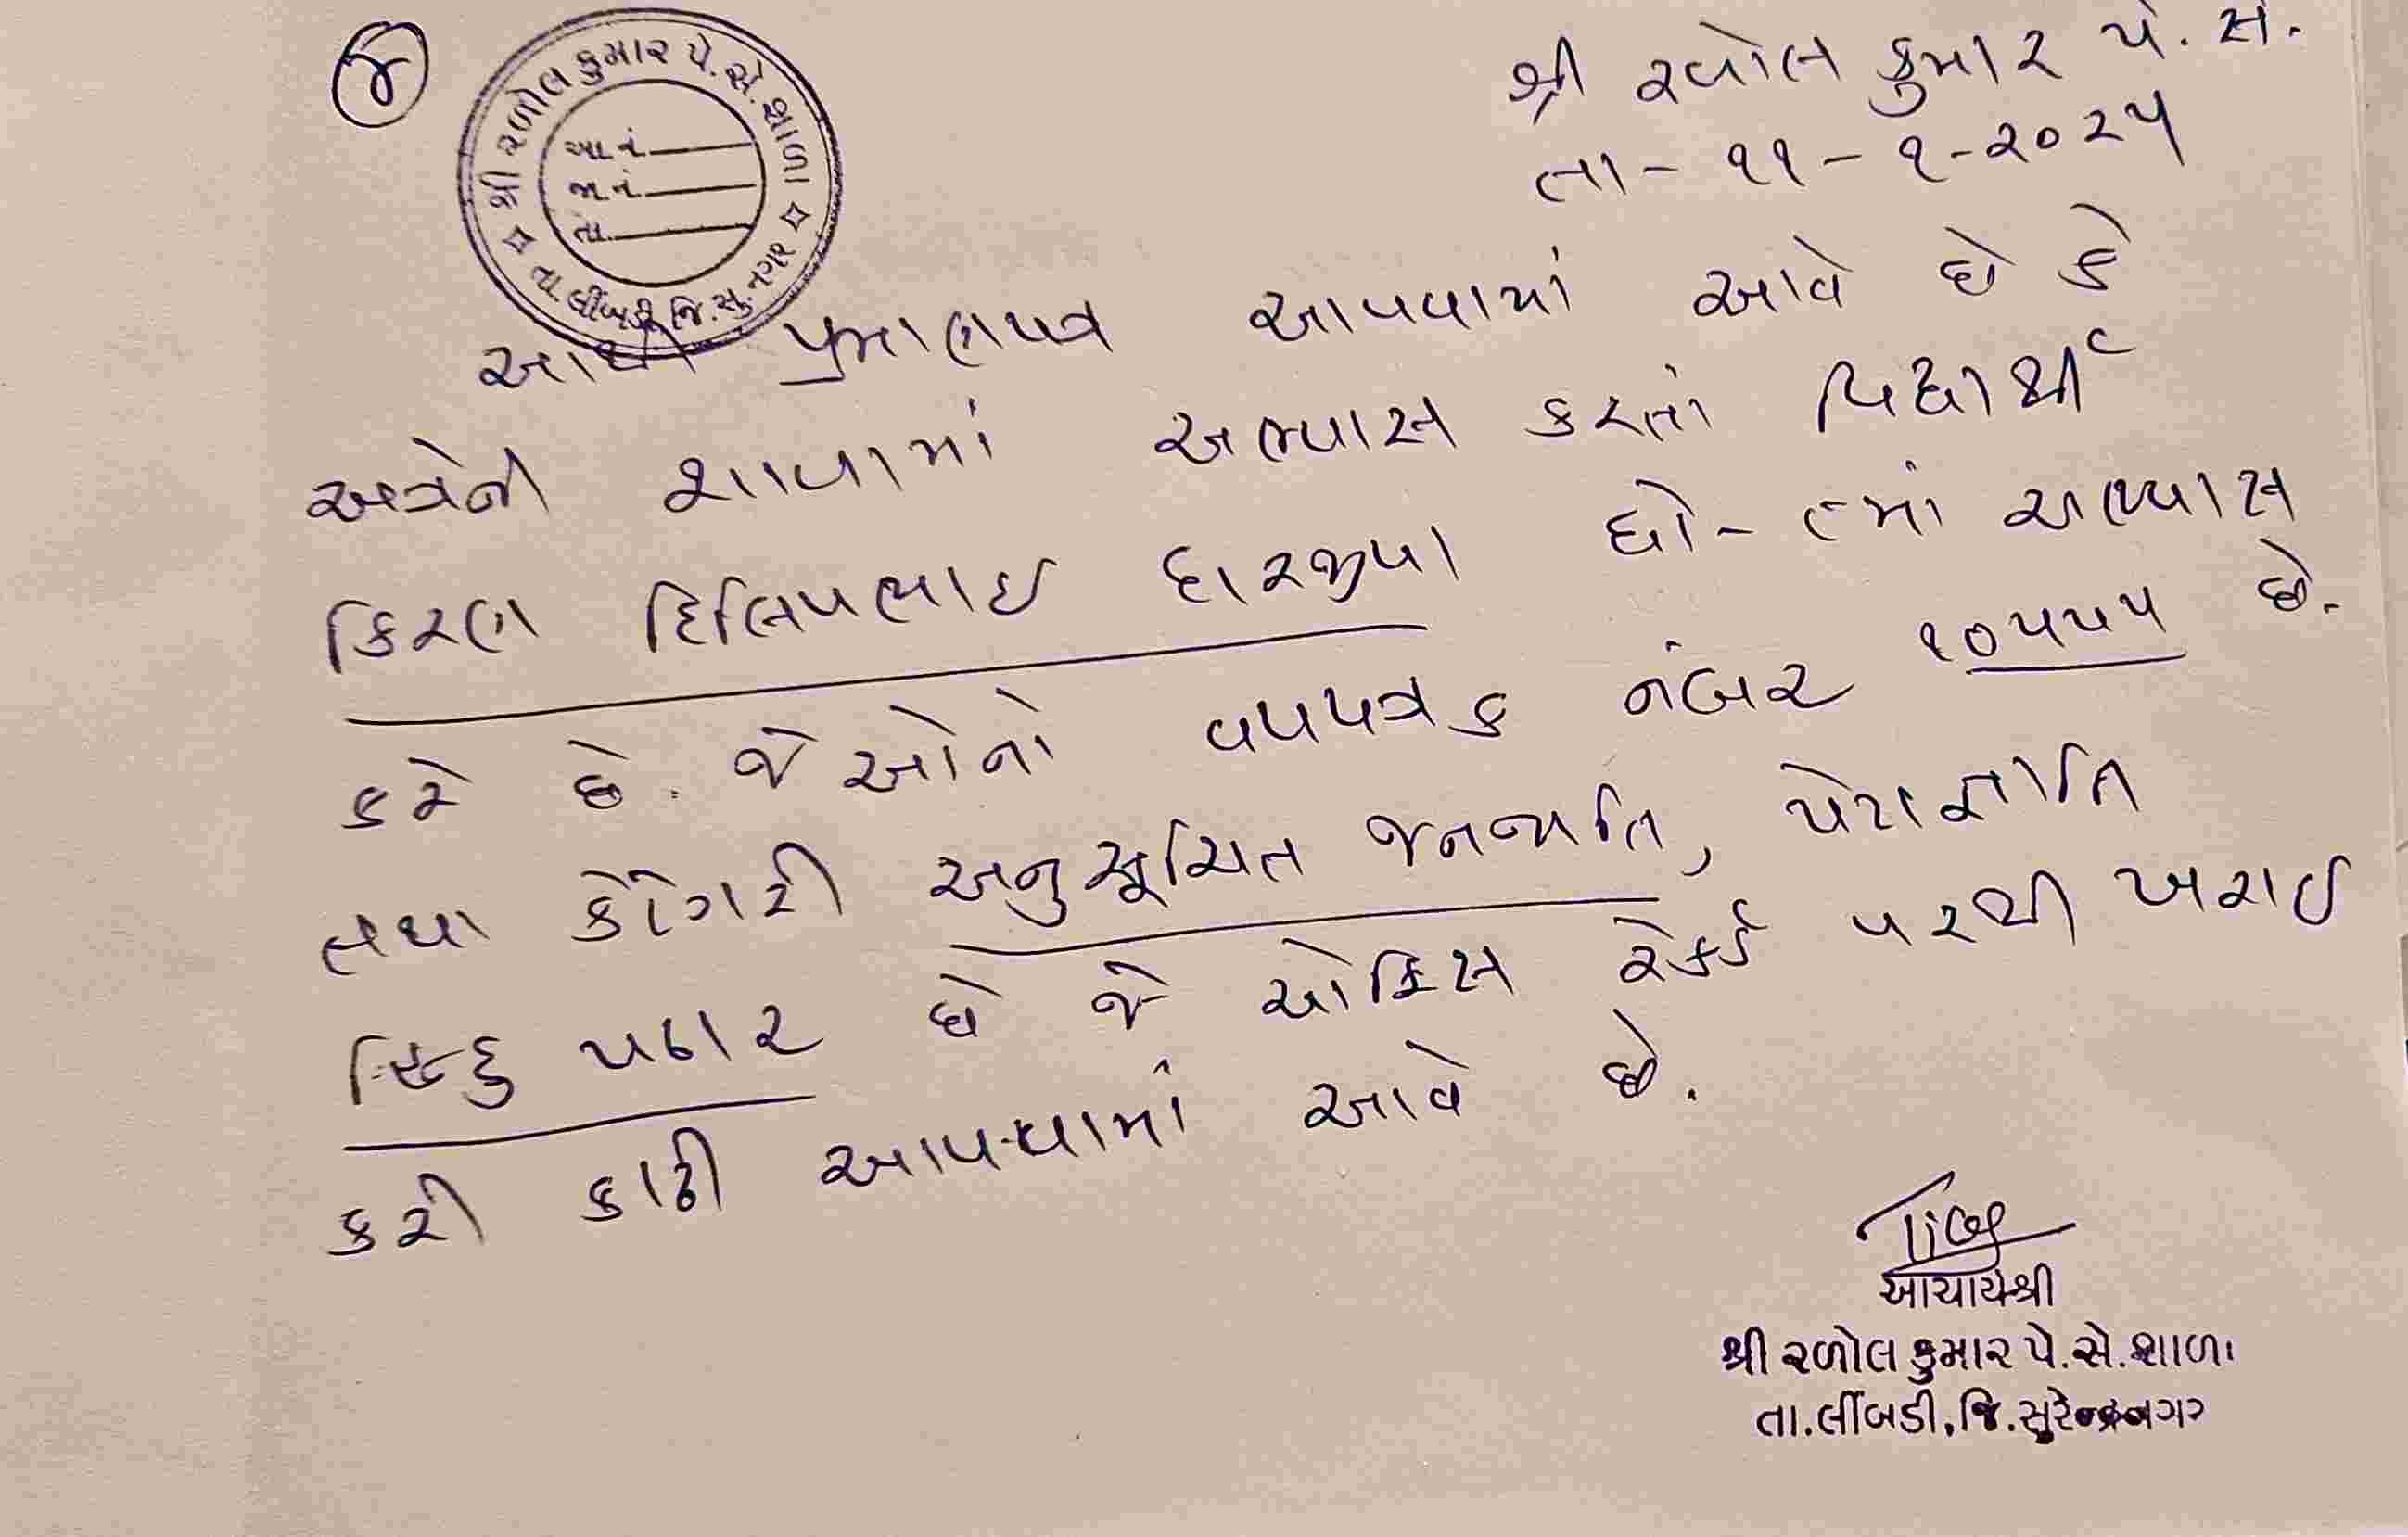 ૪
શ્રી રળોલ કુમાર પે.સે.શાળા
આ.નં.
જા.નં.
તા.
તા.લીંબડી જિ.સુ.નગર
શ્રી રળોલ કુમાર પે. સે.
તા- ૧૧ - ૧ - ૨૦૨૫
આથી પ્રમાણપત્ર આપવામાં આવે છે કે
અત્રેની શાળામાં અભ્યાસ કરતાં વિદ્યાર્થી
કિરણ દિલિપભાઇ ધો- ૮માં અભ્યાસ
કરે છે. જેઓનો વયપત્રક નંબર ૧૦૫૫૫ છે.
તથા કેટેગરી અનુસૂચિત જનજાતિ, પેટાજ્ઞાતિ
હિન્દુ પઢાર છે જે ઓફિસ રેકર્ડ પરથી ખરાઇ
કરી કાઢી આપવામાં આવે છે.
આચાર્યશ્રી
શ્રી રળોલ કુમાર પે.સે.શાળા
તા.લીંબડી,જિ.સુરેન્દ્રનગર